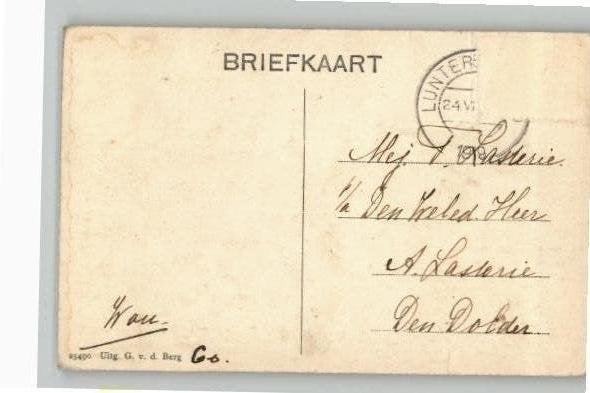 BRIEFKAART
LUNTER
24 VI
19
Mej. Lasterie.
p/a Den Weled. Heer
A. Lasterie
Den Dolder.
Wou.
25490 Uitg. G. v. d. Berg Go.